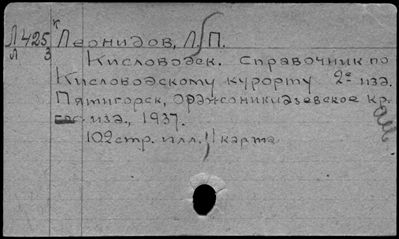 Л425 Леонидов, Л. П.
Л 3 Кисловодск. Справочник по
Кисловодскому курорту 2е изд.
Пятигорск, Орджоникидзевское кр.
изд., 1937.
102 стр. илл. карта